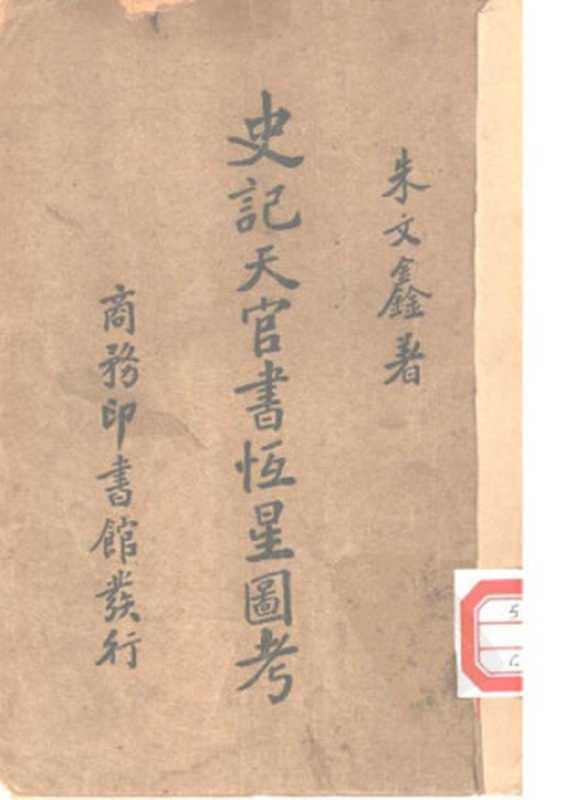 朱文鑫著
史記天官書恆星圖考
商務印書館發行
5